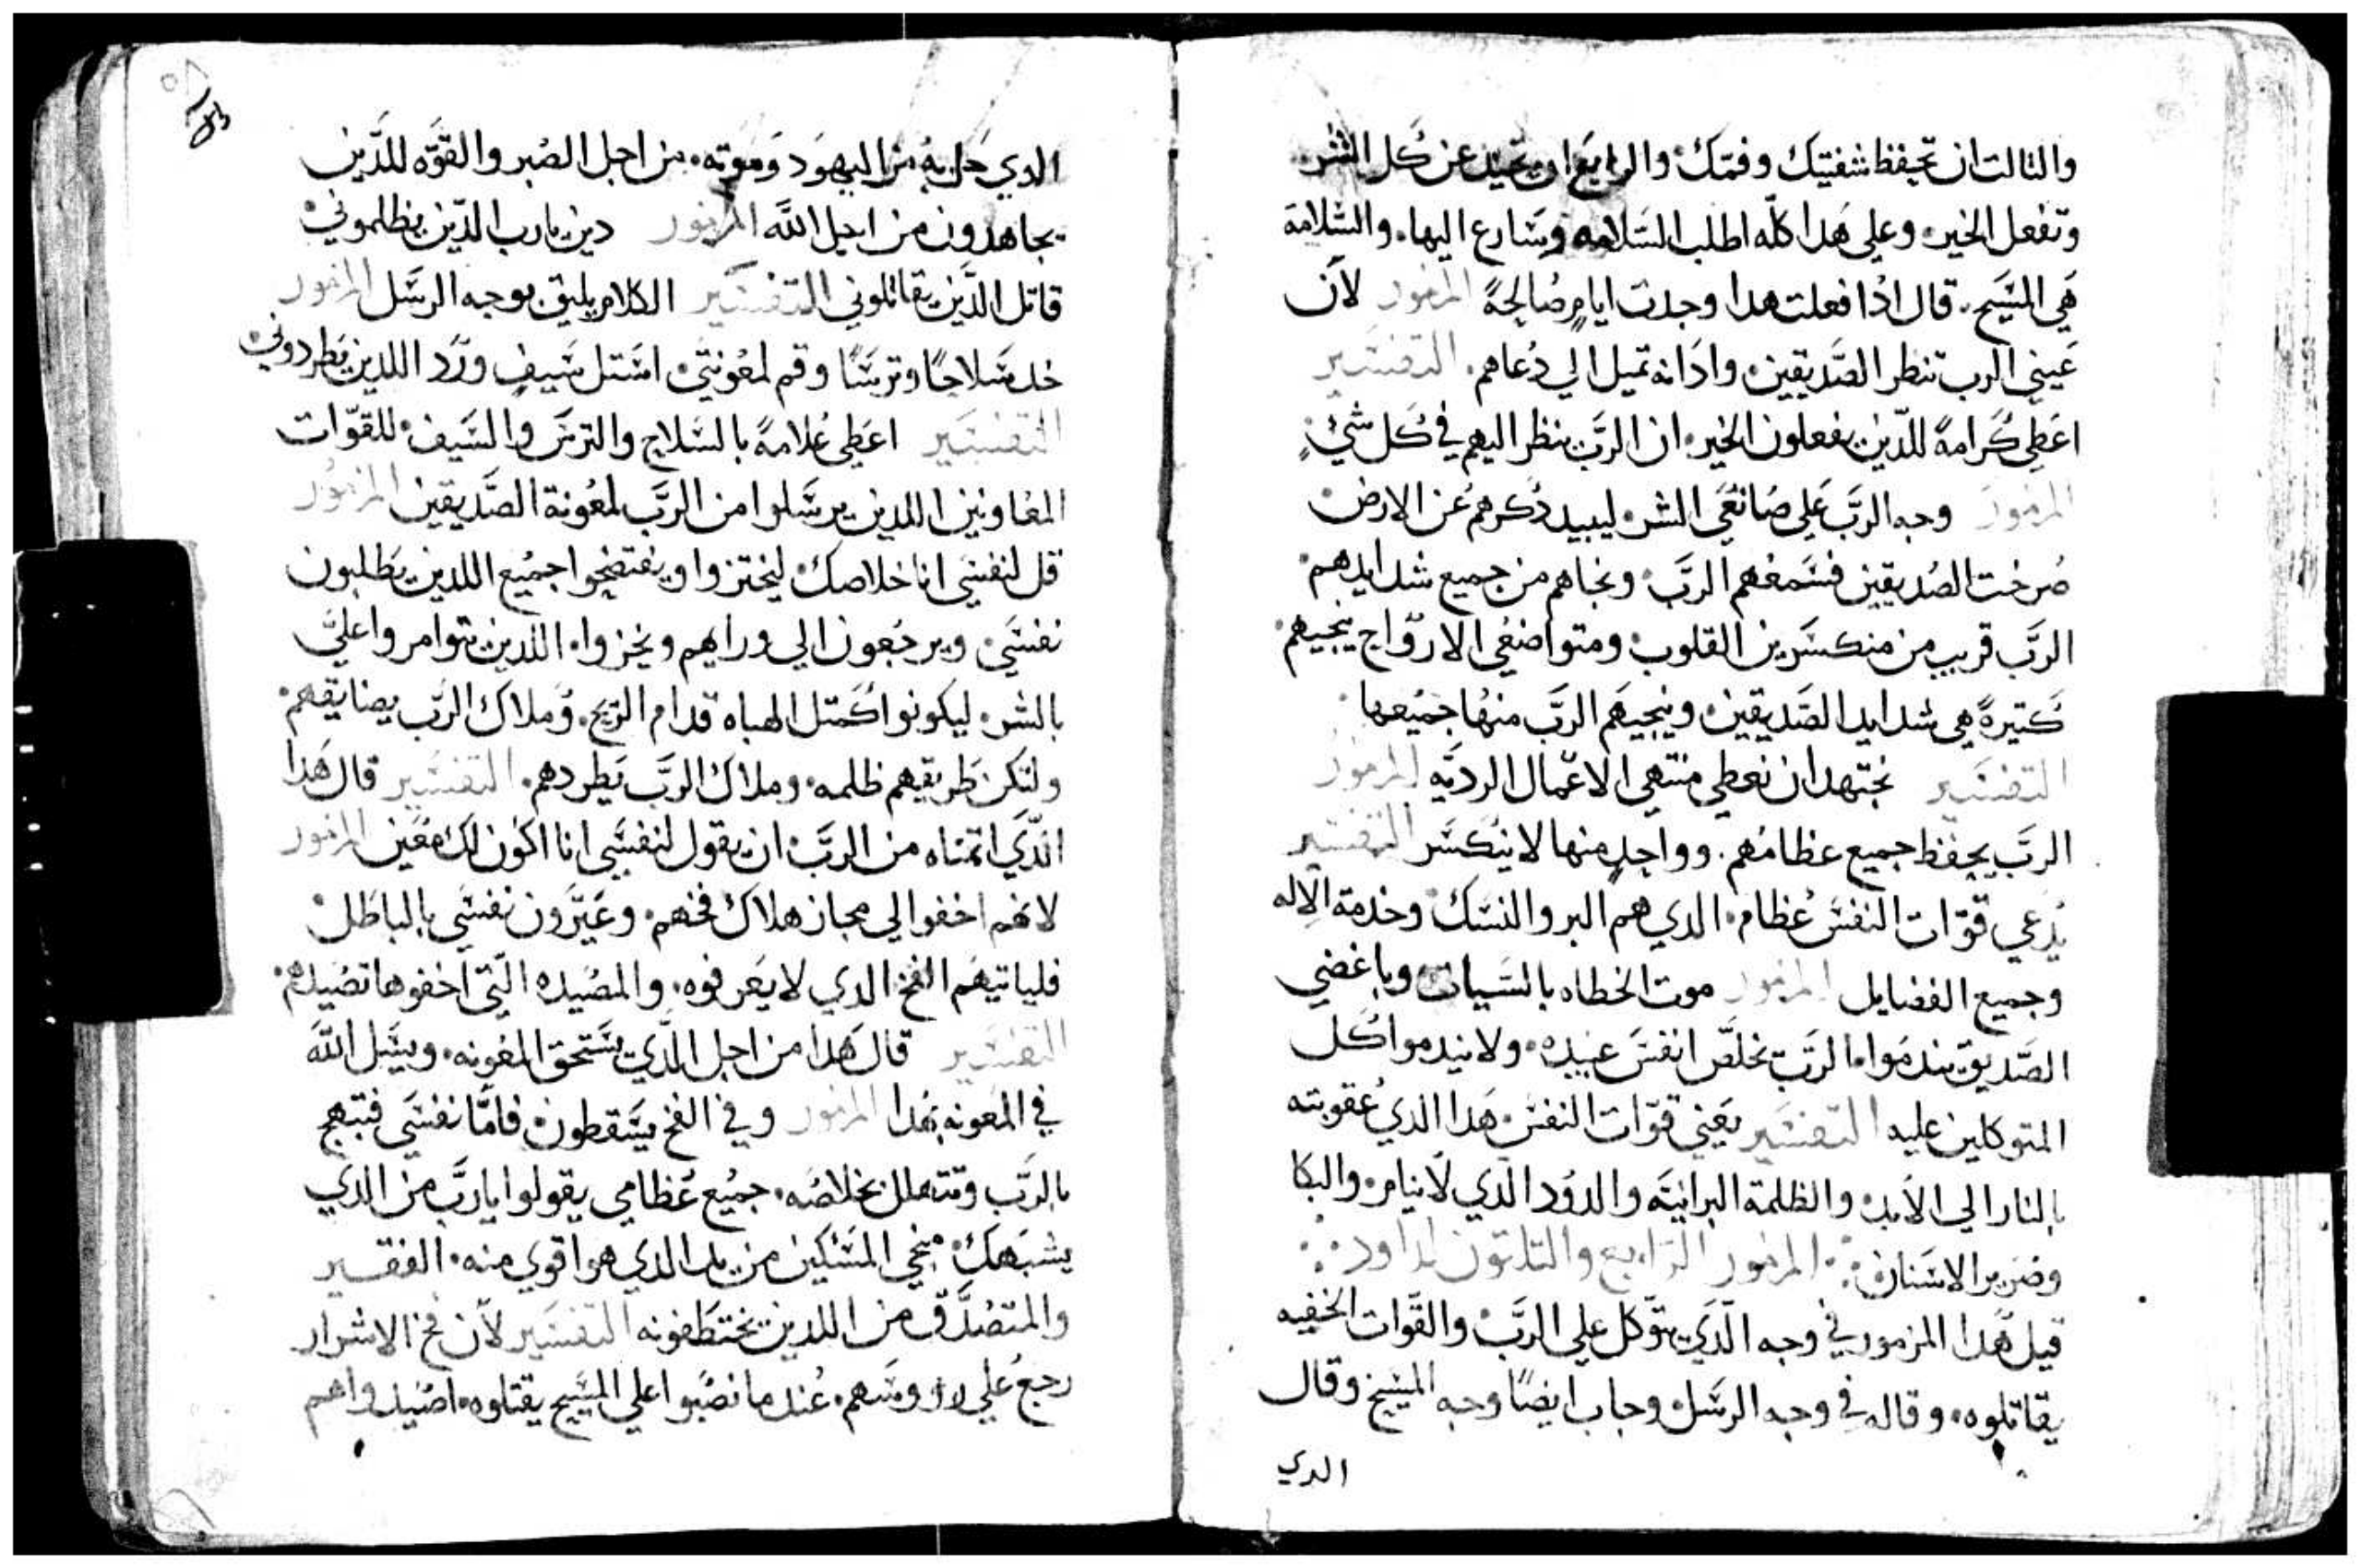 والتالت ان تحفظ شفتيك وفمك والرابع ان تحيد عن كل الشر
وتفعل الخير وعلي هدا كله اطلب السلامه وسارع اليها والسلامة
هي المسيح قال ادا فعلت هدا وجدت ايام صالحةً المزمور لان
عيني الرب تنظر الصديقين وادانه تميل الي دعاهم التفسير
اعطي كرامة للدين يفعلون الخير ان الرب ينظر اليهم في كل شيءٍ
المزمور وجه الرب علي صانعي الشر ليبيد دكرهم عن الارض
صرخت الصديقين فسمعهم الرب ونجاهم من جميع شدايدهم
الرب قريب من منكسرين القلوب ومتواضعي الارواح ينجيهم
كتيرةً هي شدايد الصديقين وينجيهم الرب منها جميعها
التفسير نجتهد ان نعطي منتهي الاعمال الرديه المزمور
الرب يحفظ جميع عظامهم وواحدٍ منها لا ينكسر التفسير
يدعي قوات النفس عظام الدي هم البر والنسك وخدمة الاله
وجميع الفضايل المزمور موت الخطاه بالسيات وباغضي
الصديق يندموا الرب يخلص انفس عبيده ولا يندموا كل
المتوكلين عليه التفسير يعني قوات النفس هدا الدي عقوبته
بالنار الي الابد والظلمة البرانيه والدود الدي لا ينام والبكا
وضرير الاسنان المزمور الرابع والتلاتون لداود
قيل هدا المزمور في وجه الدي يتوكل علي الرب والقوات الخفيه
يقاتلوه وقاله في وجه الرسل وجاب ايضًا وجه المسيح وقال
الدي
الدي حل به من اليهود وموته من اجل الصبر والقوه للدين
يجاهدون من اجل الله المزمور دين يا رب الدين يظلموني
قاتل الدين يقاتلوني التفسير الكلام يليق بوجه الرسل المزمور
خد سلاحًا وترسًا وقم لمعونتي استل سيف ورد اللدين يطردوني
التفسير اعطي علامةً بالسلاح والترس والسيف للقوات
المعاونين اللدين يرسلوا من الرب لمعونة الصديقين المزمور
قل لنفسي انا خلاصك ليختزوا ويفتضحوا جميع اللدين يطلبون
نفسي ويرجعون الي ورايهم ويخزوا اللدين توامروا علي
بالشر ليكونوا كمتل الهباه قدام الريح وملاك الرب يضايقهم
ولتكن طريقهم ظلمه وملاك الرب يطردهم التفسير قال هدا
الدي اتمناه من الرب ان يقول لنفسي انا اكون لك معين المزمور
لانهم اخفوا لي مجاز هلاك فخهم وعيرون نفسي بالباطل
فلياتيهم الفخ الدي لا يعرفوه والمصيده التي اخفوها تصيدهم
التفسير قال هدا من اجل الدي يستحق المعونه ويسل الله
في المعونه بهدا المزمور وفي الفخ يسقطون فاما نفسي فتبتهج
بالرب وتتهلل بخلاصه جميع عظامي يقولوا يا رب من الدي
يشبهك منجي المسكين من يد الدي هو اقوي منه الفقير
والمتصدق من اللدين يختطفونه التفسير لان فخ الاشرار
رجع علي رووسهم عند ما نصبوا علي المسيح يقتلوه اصيدوا هم